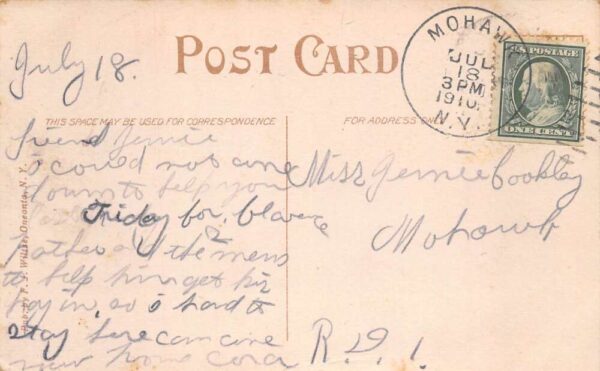 July 18.
POST CARD
MOHAWK
JUL
18
3 PM
1910
N.Y.
U.S. POSTAGE
ONE CENT
THIS SPACE MAY BE USED FOR CORRESPONDENCE
FOR ADDRESS ONLY
friend Jennie
i could not come
down to help you
Friday for
Father and the mens
to help him get his
hay in, so i had to
stay here can come
now home Cora
Miss Jennie
Mohawk
R. D. 1.
Pub. by F. J. Willse, Oneonta, N. Y.